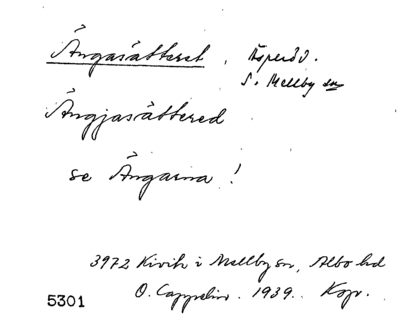 Ängasätteret, Äsperöd.
S. Mellby sn
Ängjasättered
se Ängarna!
3972 Kivik i Mellby sn, Albo hd
5301 O. Cappelin. 1939. Kspr.